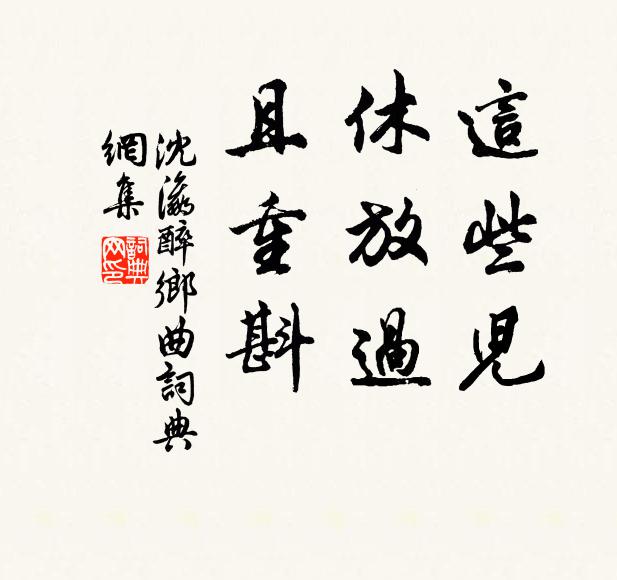 這些兒
休放過
且重斟
沈瀛醉鄉曲詞典
網集
詞典
网印